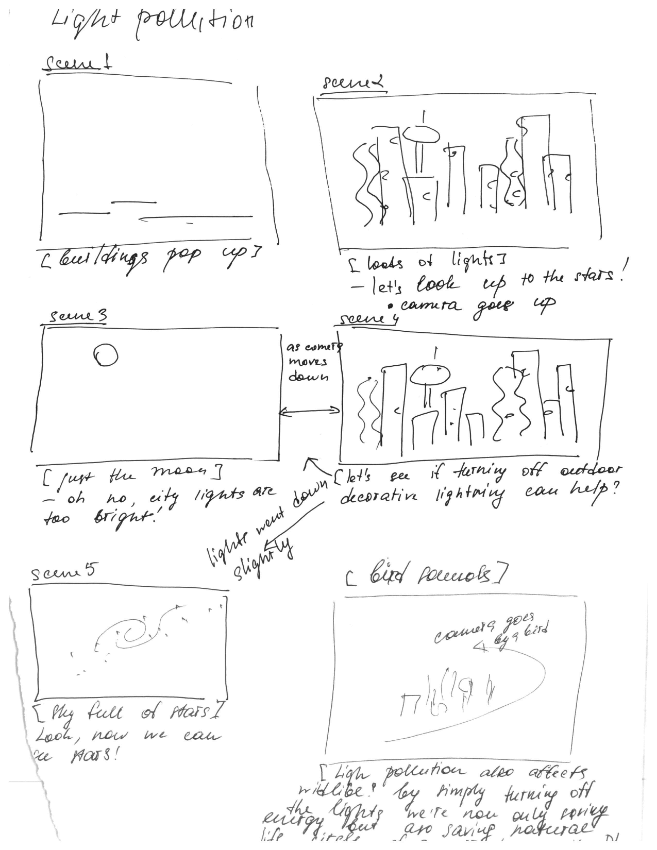 Light pollution
scene 1
[buildings pop up]
scene 2
[loads of lights]
– let's look up to the stars!
• camera goes up
scene 3
[just the moon]
– oh no, city lights are
too bright!
as camera
moves
down
scene 4
[let's see if turning off outdoor
decorative lightning can help?
lights went down
slightly
scene 5
[sky full of stars]
Look, now we can
stars!
[bird sounds]
camera goes
by a bird
[Ligh pollution also affects
wildlife! by simply turning off
the lights we're now only saving
energy but are saving natural
life circle of